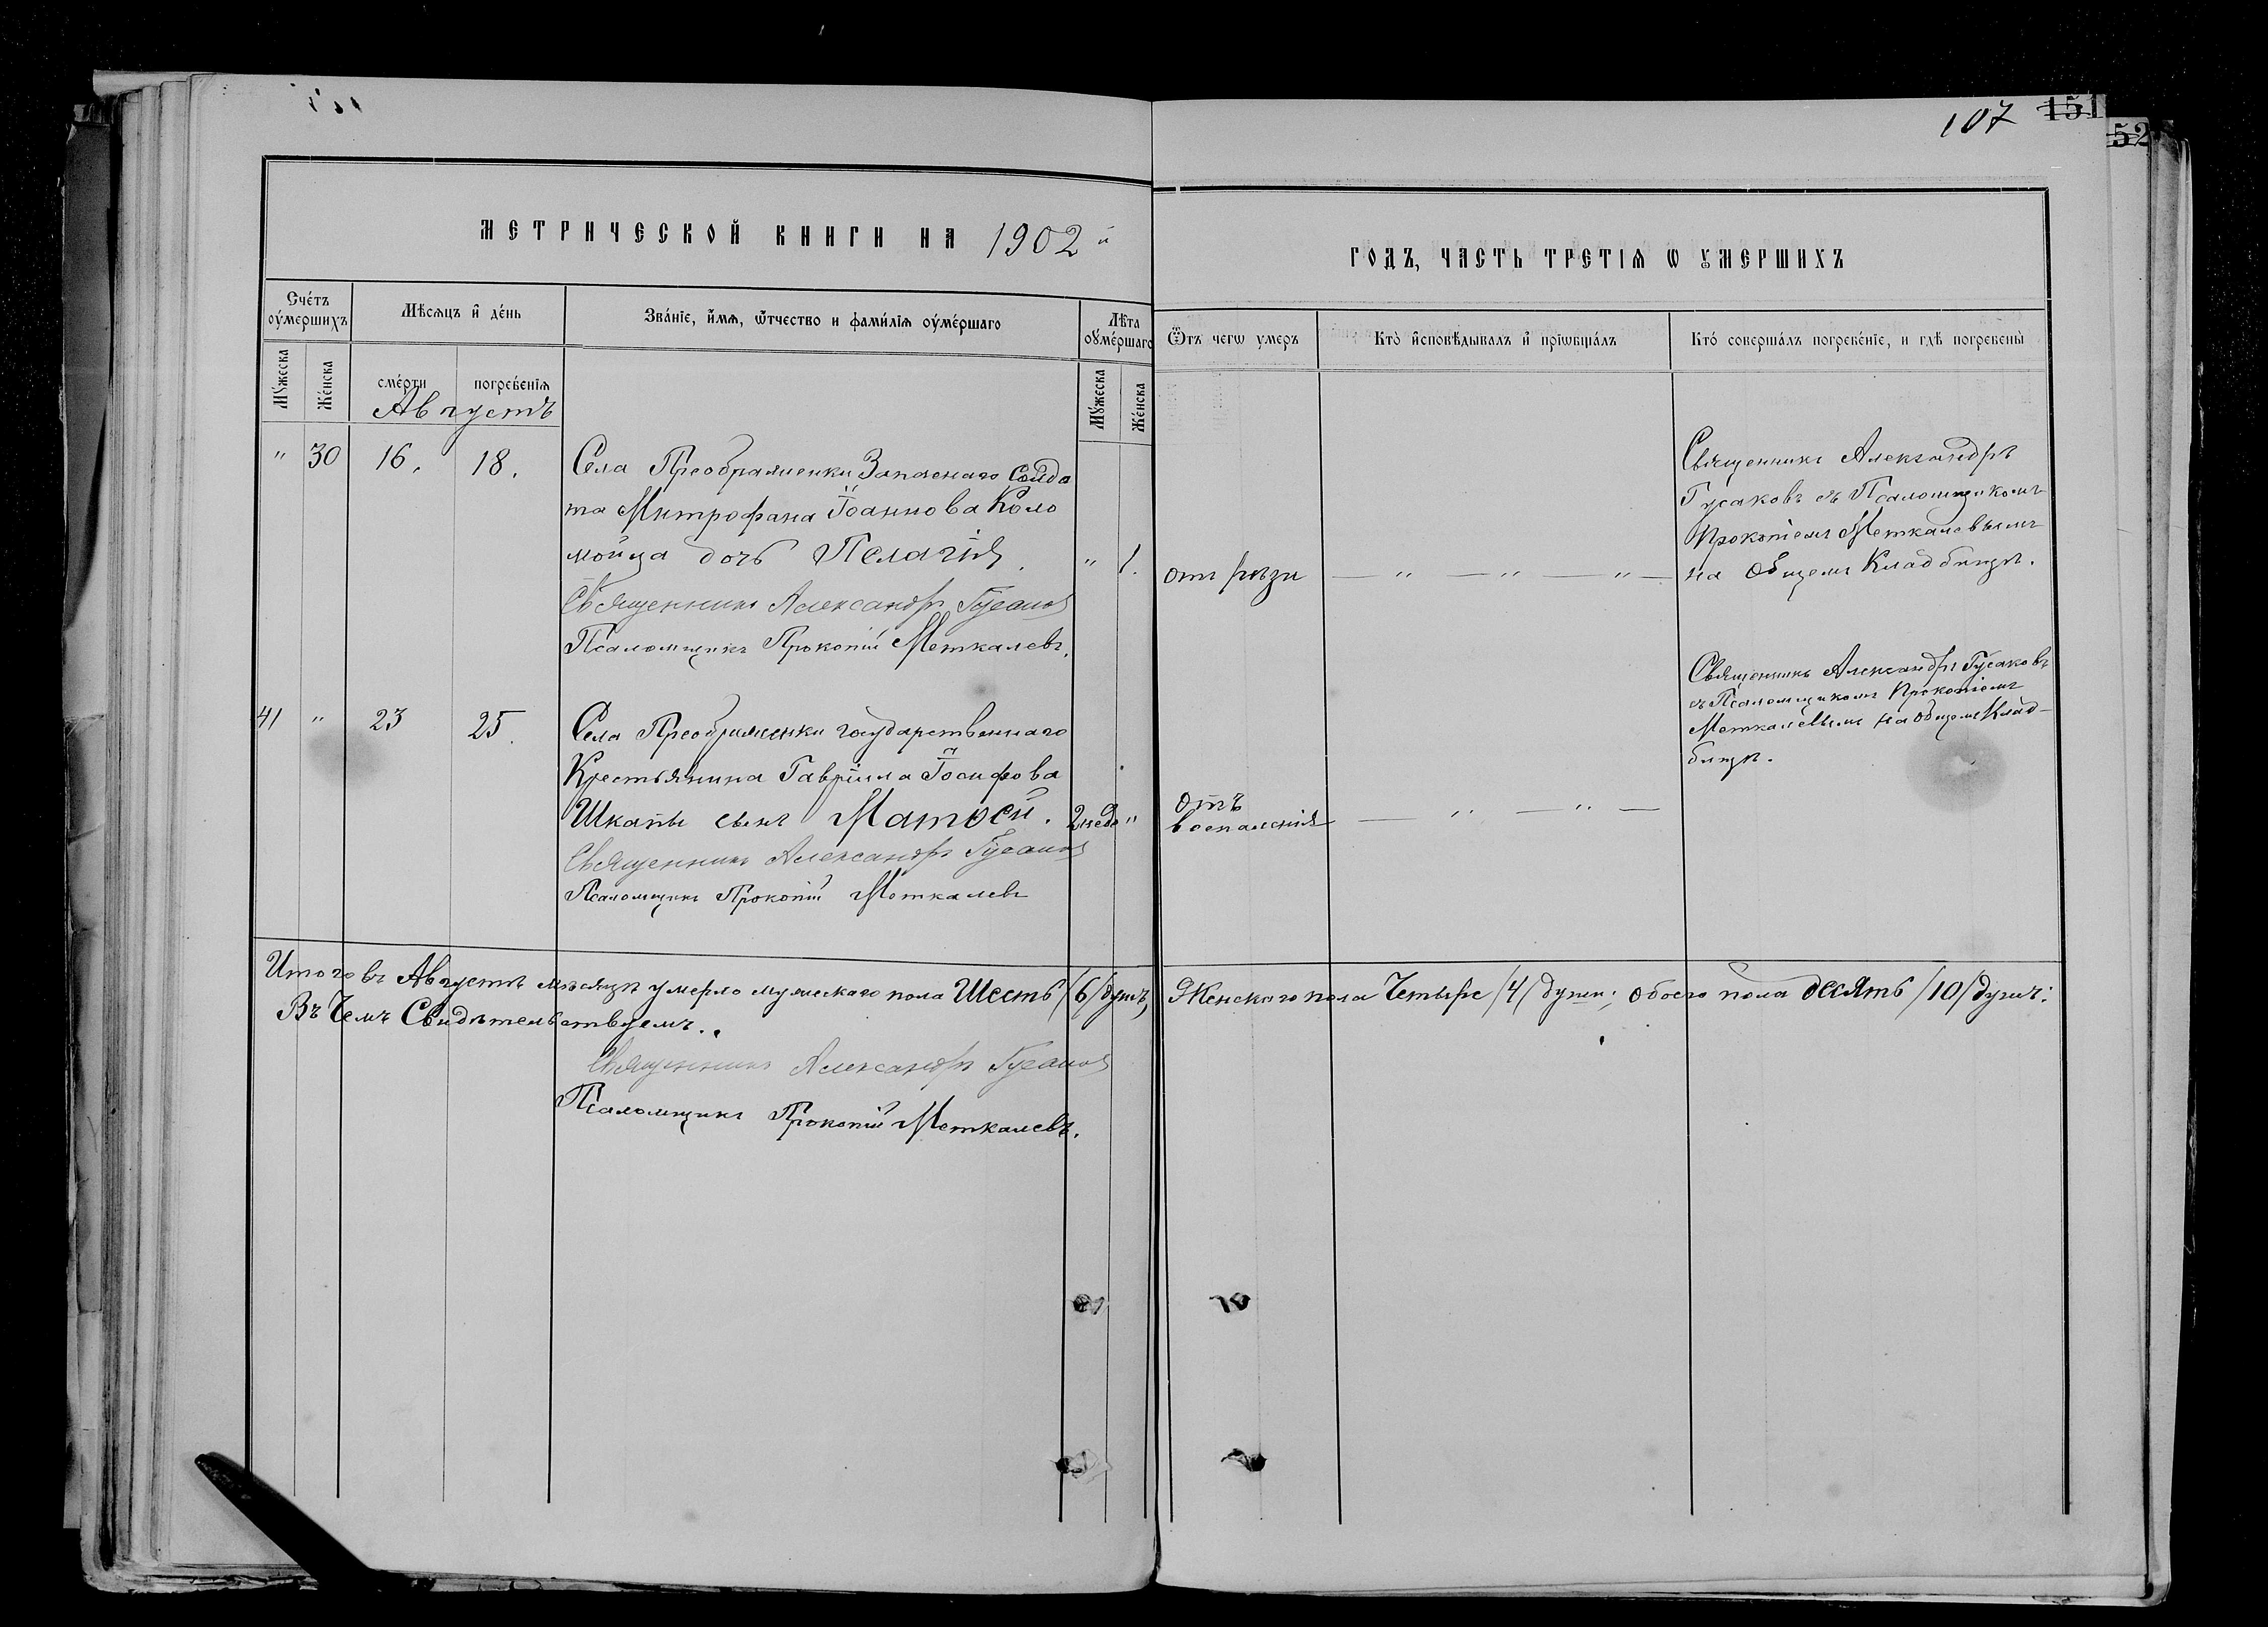 107 151
52
МЕТРИЧЕСКОЙ КНИГИ НА 1902 й
ГОДЪ, ЧАСТЬ ТРЕТІѦ Ѡ УМЕРШИХЪ
Счетъ оумершихъ
Мѣсяцъ и день
Званіе, имя, ѿчество и фамилія оумершаго
Лѣта оумершаго
Ѿтъ чегѡ умеръ
Кто исповѣдывалъ и пріѡбщалъ
Кто совершалъ погребеніе, и гдѣ погребены
Мужеска
Женска
смерти
погребенія
Мужеска
Женска
Августъ
" 30 16. 18.
Села Преображенки Запаснаго Солда
та Митрофана Іоаннова Коло
мойца дочь Пелагія. " 1.
отъ рѣзи — " — " — " —
Священникъ Александръ Гусаковъ
Псаломщикъ Прокопій Меткалевъ.
Священникъ Александръ
Гусаковъ съ Псаломщикомъ
Прокопіемъ Меткалевымъ
на общемъ Кладбищѣ.
41 " 23 25.
Села Преображенки государственнаго
Крестьянина Гавріила Іосифова
Шкапы сынъ Матѳей. 2 недѣ "
отъ
воспаленія — " — " —
Священникъ Александръ Гусаковъ
Псаломщикъ Прокопій Меткалевъ
Священникъ Александръ Гусаковъ
съ Псаломщикомъ Прокопіемъ
Меткалевымъ на общемъ Клад-
бищѣ.
Итого въ Августѣ мѣсяцѣ умерло мужескаго пола Шесть /6/ душъ, Женскаго пола Четыре /4/ души; обоего пола десять /10/ душъ:
Въ Чемъ Свидѣтельствуемъ.
Священникъ Александръ Гусаковъ
Псаломщикъ Прокопій Меткалевъ.